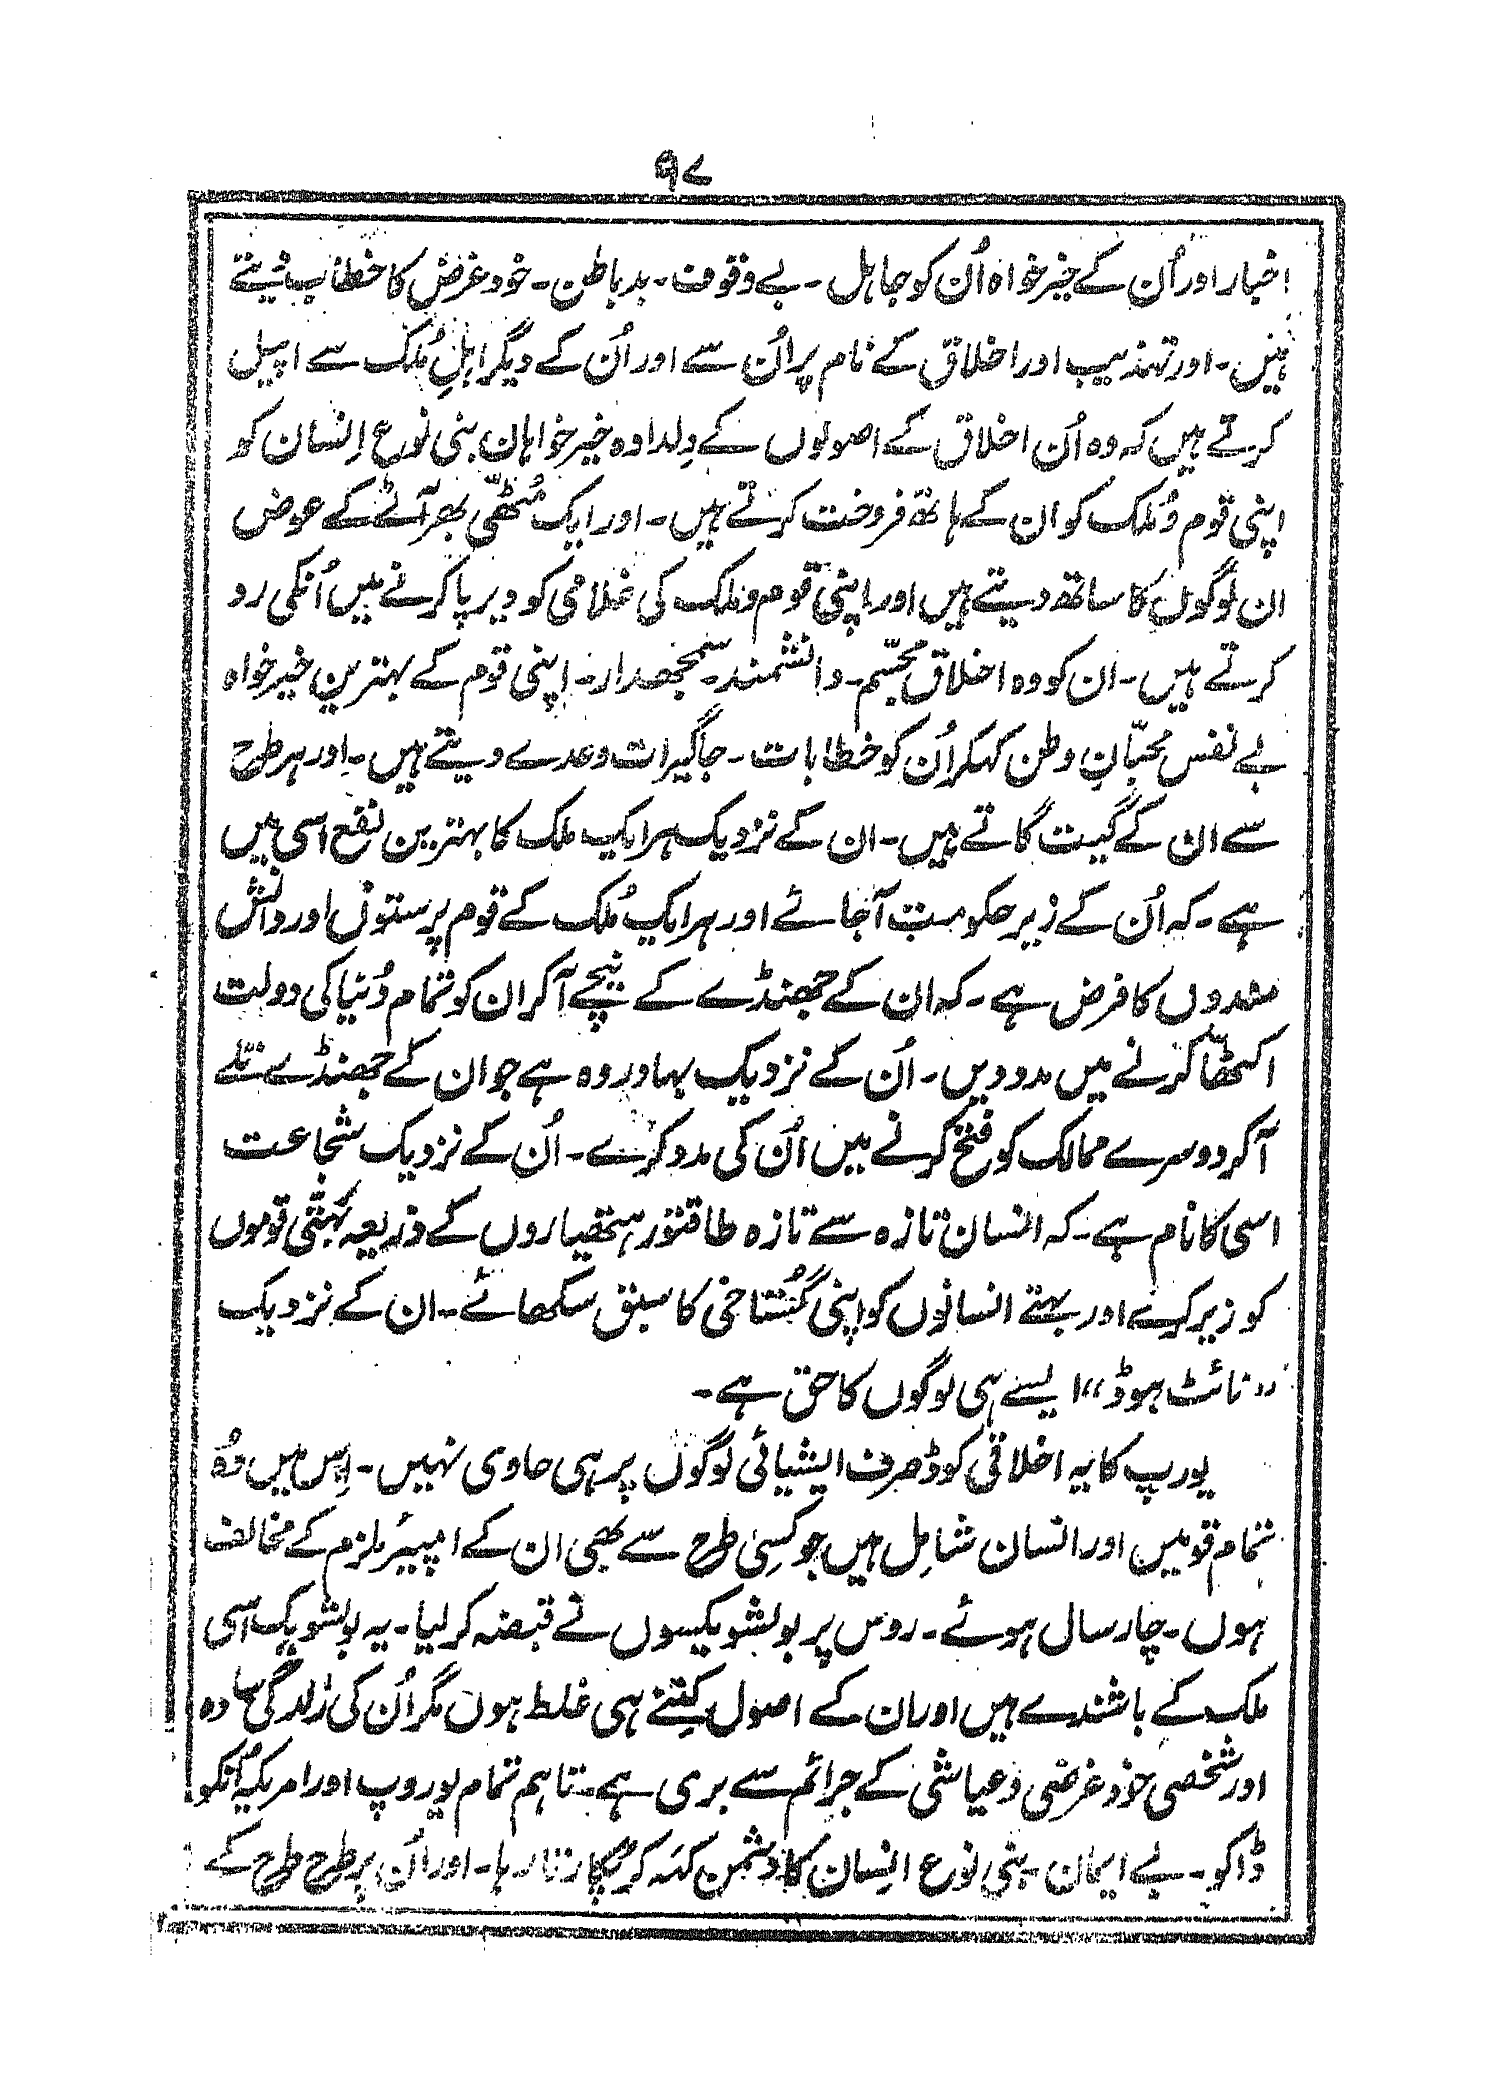 ۹۷
اخبار اور اُن کے خیر خواہ اُن کو جاہل ۔ بے وقوف ۔ بد باطن ۔ خود غرض کا خطاب دیتے
ہیں ۔ اور تہذیب اور اخلاق کے نام پر اُن سے اور اُن کے دیگر اہلِ مُلک سے اپیل
کرتے ہیں کہ وہ اُن اخلاق کے اصولوں کے دِلدادہ خیر خواہانِ بنی نوع اِنسان کو
اپنی قوم و مُلک کو ان کے ہاتھ فروخت کرتے ہیں ۔ اور ایک مُٹھّی بھر آٹے کے عوض
ان لوگوں کا ساتھ دیتے ہیں اور اپنی قوم و ملک کی غلامی کو دیر پا کرنے میں اُنکی رو
کرتے ہیں ۔ ان کو وہ اخلاق مجسّم ۔ دانشمند ۔ سمجھدار ۔ اپنی قوم کے بہترین خیر خواہ
بے نفس محبّانِ وطن کہکر اُن کو خطابات ۔ جاگیرات وعدے دیتے ہیں ۔ اور ہر طرح
سے ان کے گیت گاتے ہیں ۔ ان کے نزدیک ہر ایک ملک کا بہترین نفع اسی میں
ہے ۔ کہ اُن کے زیر حکومت آجائے اور ہر ایک مُلک کے قوم پرستوں اور دانش
مندوں کا فرض ہے ۔ کہ ان کے جھنڈے کے نیچے آ کر ان کو تمام دُنیا کی دولت
اکٹھا کرنے میں مدد دیں ۔ اُن کے نزدیک بہادر وہ ہے جو ان کے جھنڈے تلے
آکر دوسرے ممالک کو فتح کرنے میں اُن کی مدد کرے ۔ اُن کے نزدیک شجاعت
اسی کا نام ہے ۔ کہ انسان تازہ سے تازہ طاقتور ہتھیاروں کے ذریعہ نہتّی قوموں
کو زیر کرے اور نہتے انسانوں کو اپنی گُستاخی کا سبق سکھائے ۔ ان کے نزدیک
”نائٹ ہوڈ“ ایسے ہی لوگوں کا حق ہے ۔
یورپ کا یہ اخلاقی کوڈ صرف ایشیائی لوگوں پر ہی حاوی نہیں ۔ اِس میں وُہ
تمام قومیں اور انسان شامِل ہیں جو کسِی طرح سے بھی ان کے امپیرئلزم کے مخالف
ہوں ۔ چار سال ہوئے ۔ روس پر بولشویکیوں نے قبضہ کر لیا ۔ یہ بولشویک اسی
ملک کے باشندے ہیں اور ان کے اصول کِتنے ہی غلط ہوں مگر اُن کی زندگی سادہ
اور شخصی خود غرضی و عیاشی کے جرائم سے بری ہے ۔ تاہم تمام یوروپ اور امریکہ اُنکو
ڈاکو ۔ بے ایمان ۔ بنی نوع انِسان کا دشمن کہہ کر پکارتا رہا ۔ اور اُن پر طرح طرح کے